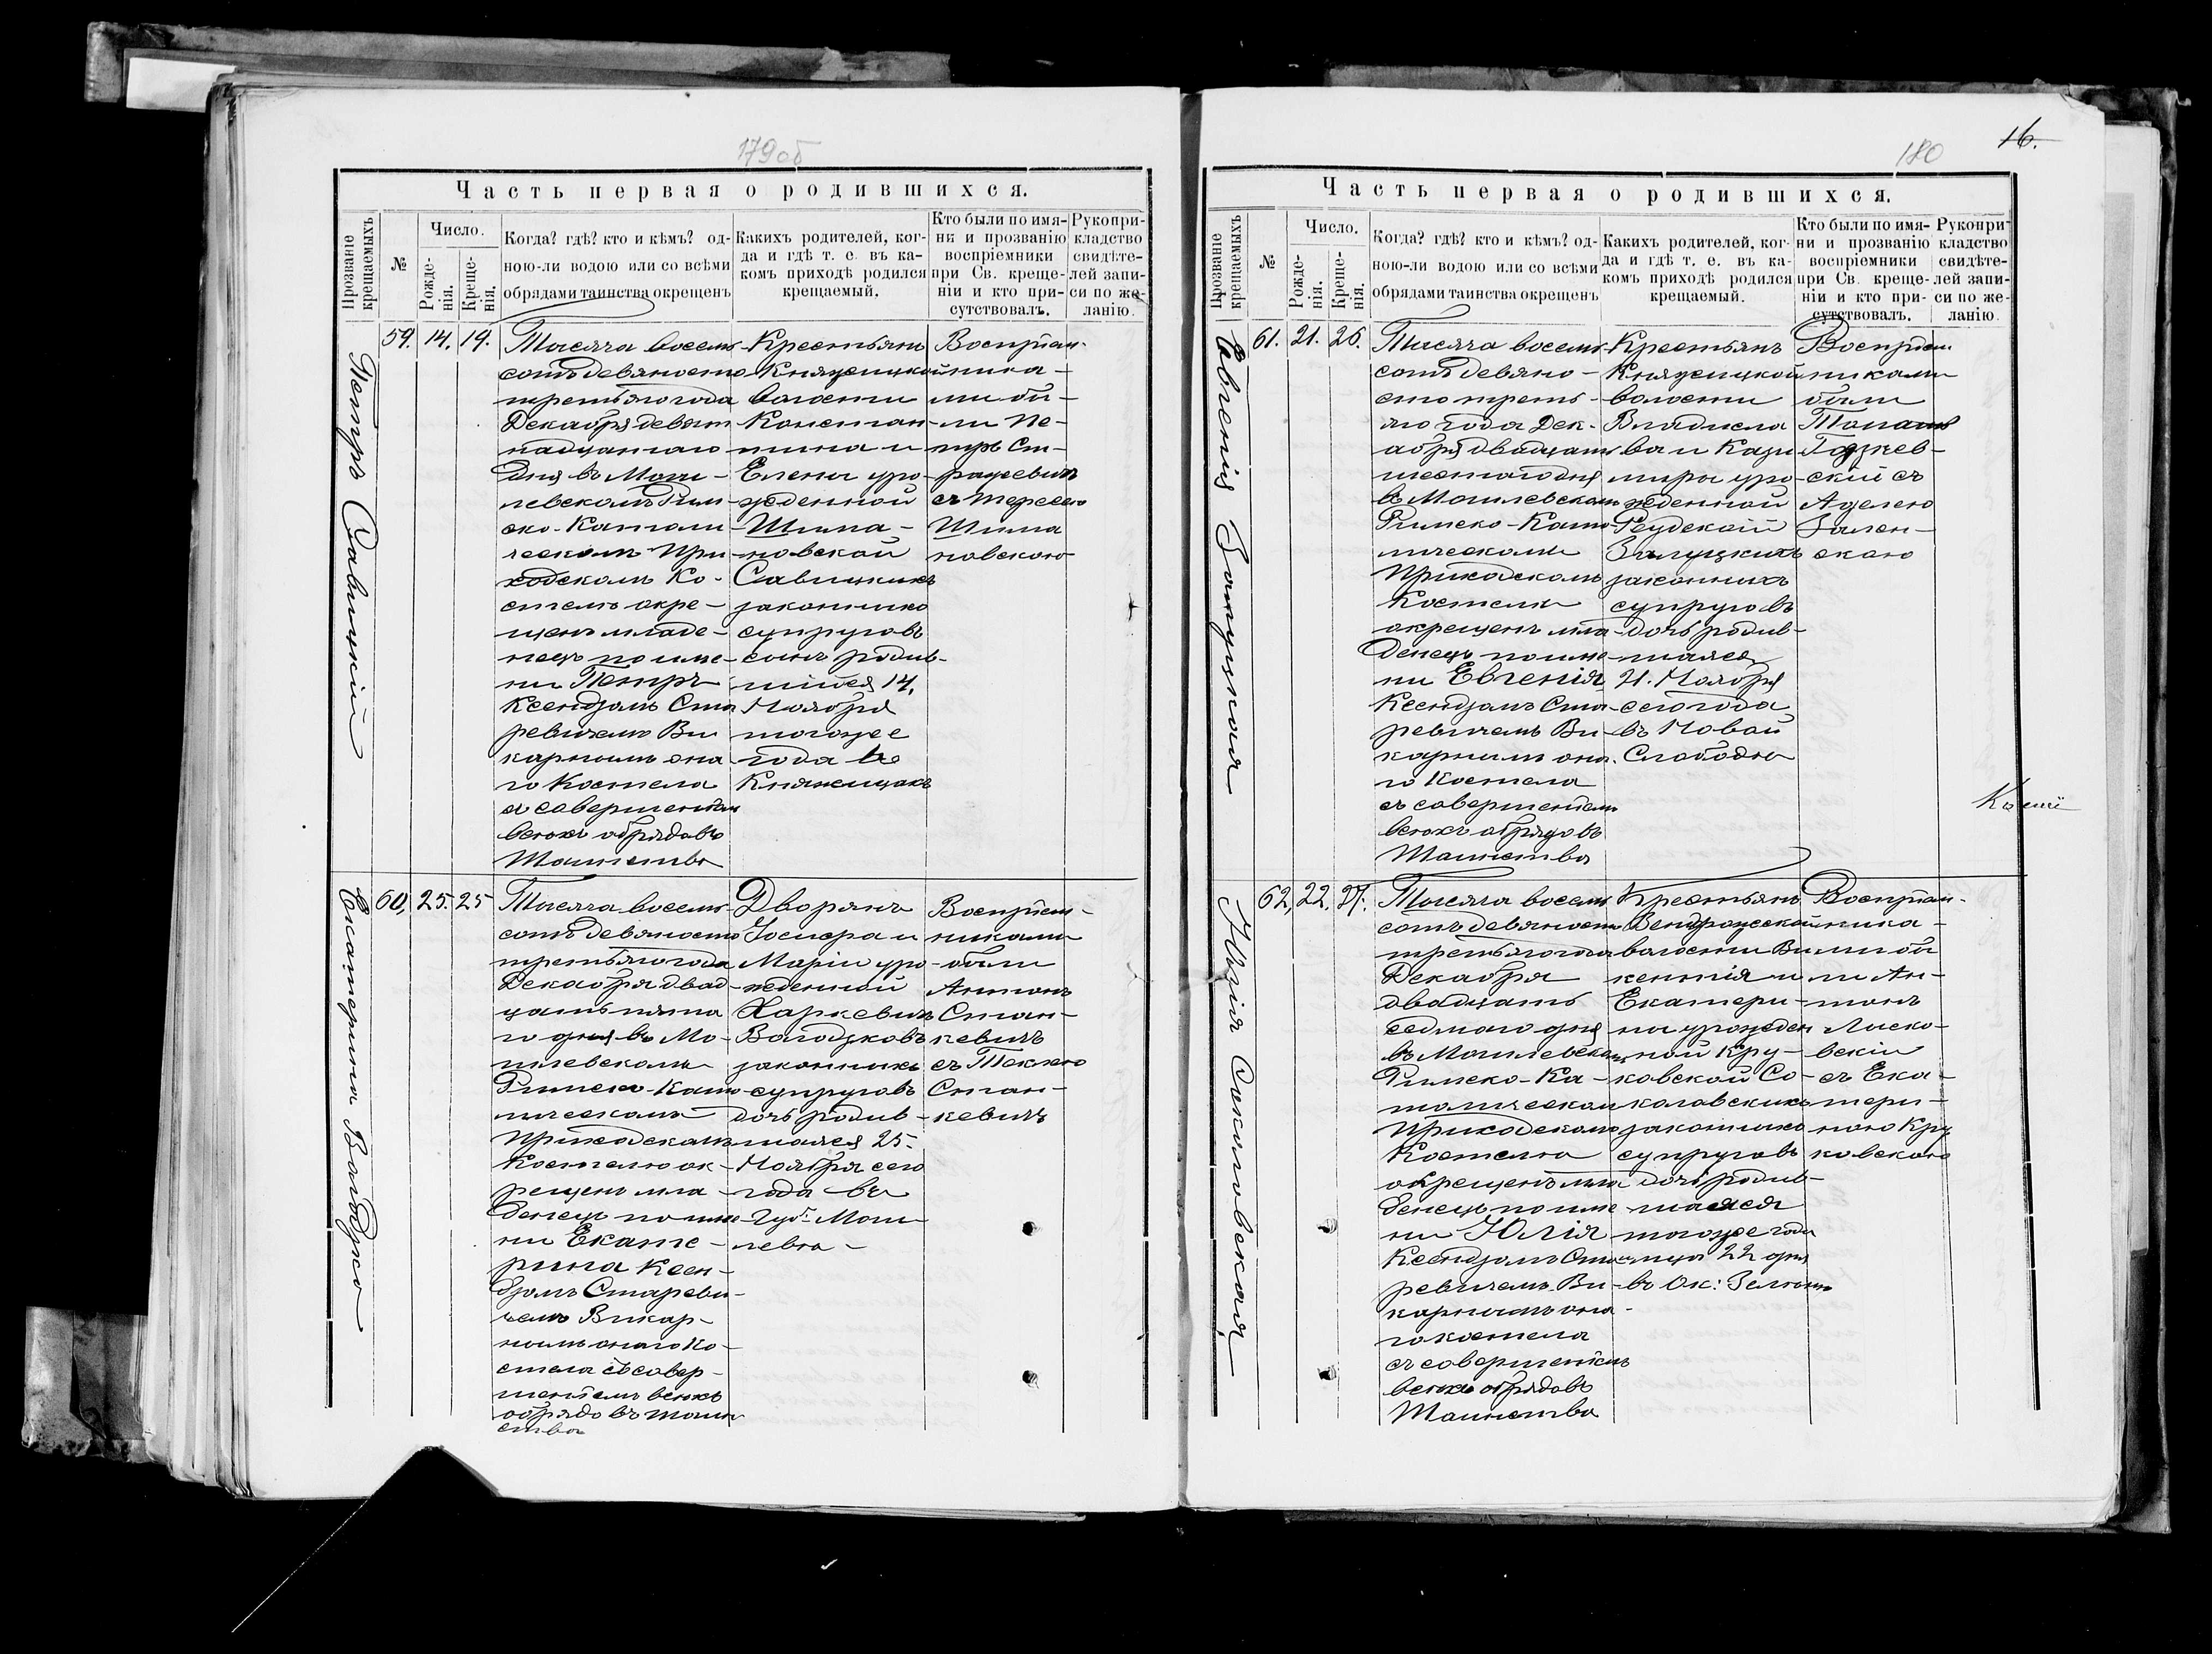 179об
Часть первая о родившихся.
Прозваніе крещаемыхъ
№
Число.
Рожде-
нія.
Креще-
нія.
Когда? гдѣ? кто и кѣмъ? од-
ною-ли водою или со всѣми
обрядами таинства окрещенъ
Какихъ родителей, ког-
да и гдѣ т. е. въ ка-
комъ приходѣ родился
крещаемый.
Кто были по имя-
ни и прозванію
воспріемники
при Св. креще-
ніи и кто при-
сутствовалъ.
Рукопри-
кладство
свидѣте-
лей запи-
си по же-
ланію.
Петръ Савицкій
59. 14. 19.
Тысяча восемь-
сотъ девяносто
третьяго года
Декабря девят
надцатаго
дня въ Моги-
левскомъ Рим-
ско-Католи-
ческомъ При-
ходскомъ Ко-
стелѣ окре-
щенъ младе-
нецъ по име-
ни Петръ
Ксендзомъ Ста
ревичемъ Ви
карнымъ она
го Костела
съ совершеніем
всѣхъ обрядовъ
Таинства
Крестьянъ
Княжицкой
волости
Констан-
тина и
Елены уро-
жденной
Шима-
новской
Савицкихъ
законныхъ
супруговъ
сынъ родив-
шійся 14.
Ноября
тогоже
года въ
Княжицахъ
Воспріем-
ника-
ми бы-
ли Пе-
тръ Ст-
рацевичъ
съ Тересою
Шима
новскою
Екатерина Володзко
60. 25. 25
Тысяча восемь-
сотъ девяносто
третьяго года
Декабря двад-
цать пята
го дня въ Мо-
гилевскомъ
Римско-Като-
лическомъ
Приходскомъ
Костелѣ ок-
рещенъ мла-
денецъ по име-
ни Екате-
рина Ксен-
дзомъ Стареви-
чемъ Викар-
нымъ онаго Ко-
стела съ совер-
шеніемъ всѣхъ
обрядовъ таин
ства
Дворянъ
Іосифа и
Маріи уро-
жденной
Харкевичъ
Володзковъ
законныхъ
супруговъ
дочь родив-
шаяся 25.
Ноября сего
года въ
Губ. Моги
левѣ-
Воспріем-
никами
были
Антонъ
Стан-
кевичъ
съ Теклею
Стан-
кевичъ
16.
180
Часть первая о родившихся.
Прозваніе крещаемыхъ
№
Число.
Рожде-
нія.
Креще-
нія.
Когда? гдѣ? кто и кѣмъ? од-
ною-ли водою или со всѣми
обрядами таинства окрещенъ
Какихъ родителей, ког-
да и гдѣ т. е. въ ка-
комъ приходѣ родился
крещаемый.
Кто были по имя-
ни и прозванію
воспріемники
при Св. креще-
ніи и кто при-
сутствовалъ.
Рукопри-
кладство
свидѣте-
лей запи-
си по же-
ланію.
Евгенія Залуцкая
61. 21. 26.
Тысяча восемь-
сотъ девяно-
сто треть-
яго года Дек-
абря двадцать
шестого дня
въ Могилевском
Римско-Като-
лическомъ
Приходскомъ
Костелѣ
окрещенъ мла-
денецъ по име
ни Евгенія
Ксендзомъ Ста-
ревичемъ Ви-
карнымъ она-
го Костела
съ совершеніем
всѣхъ обрядовъ
Таинства
Крестьянъ
Княжицкой
волости
Владисла
ва и Кази
миры уро-
жденной
Залуцкихъ
законныхъ
супруговъ
дочь родив-
шаяся
21. Ноября
сего года
въ Новой
Слободѣ
Воспріем
никами
были
съ
Аделею
Зален-
скою
Юлія Соколовская
62. 22. 27.
Тысяча восемь
сотъ девяносто
третьяго года
Декабря
двадцать
седмаго дня
въ Могилевском
Римско-Ка-
толическом
Приходскомъ
Костелѣ
окрещенъ мла
денецъ по име
ни Юлія
Ксендзомъ Ста
ревичемъ Ви-
карнымъ она-
го костела
съ совершеніемъ
всѣхъ обрядовъ
Таинства
Крестьянъ
Вендрожской
волости Ви
кентія и
Екатери-
ны урожден
ной Кру-
ковской Со-
коловскихъ
законныхъ
супруговъ
дочь родив-
шаяся
тогоже года
мца 22 дня
въ Ок:
Воспріем-
ника-
ми бы
ли Ан-
тонъ
Лиско-
вскій
съ Ека-
тери-
ною Кру
ковскою